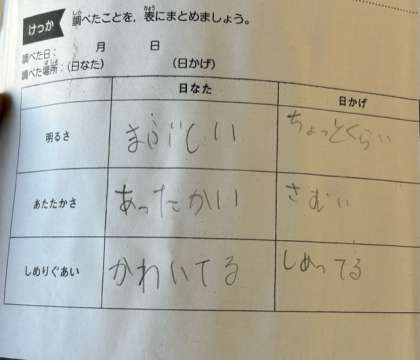 けっか 調べたことを、表にまとめましょう。
調べた日： 月 日
調べた場所：（日なた） （日かげ）
日なた 日かげ
明るさ まぶしい ちょっとくらい
あたたかさ あったかい さむい
しめりぐあい かわいてる しめってる